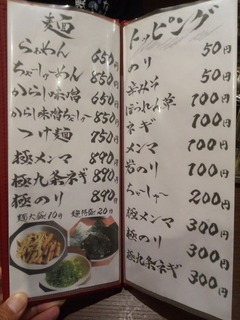 麺
らぁめん 650円
ちゃーしゅーめん 850円
からし味噌 650円
からし味噌ちゃーしゅー 850円
つけ麺 750円
極メンマ 890円
極九条ネギ 890円
極のり 890円
麺大盛10円 麺特盛20円
トッピング
のり 50円
辛味噌 50円
ほうれん草 100円
ネギ 100円
メンマ 100円
岩のり 100円
ちゃーしゅー 200円
極メンマ 300円
極のり 300円
極九条ネギ 300円